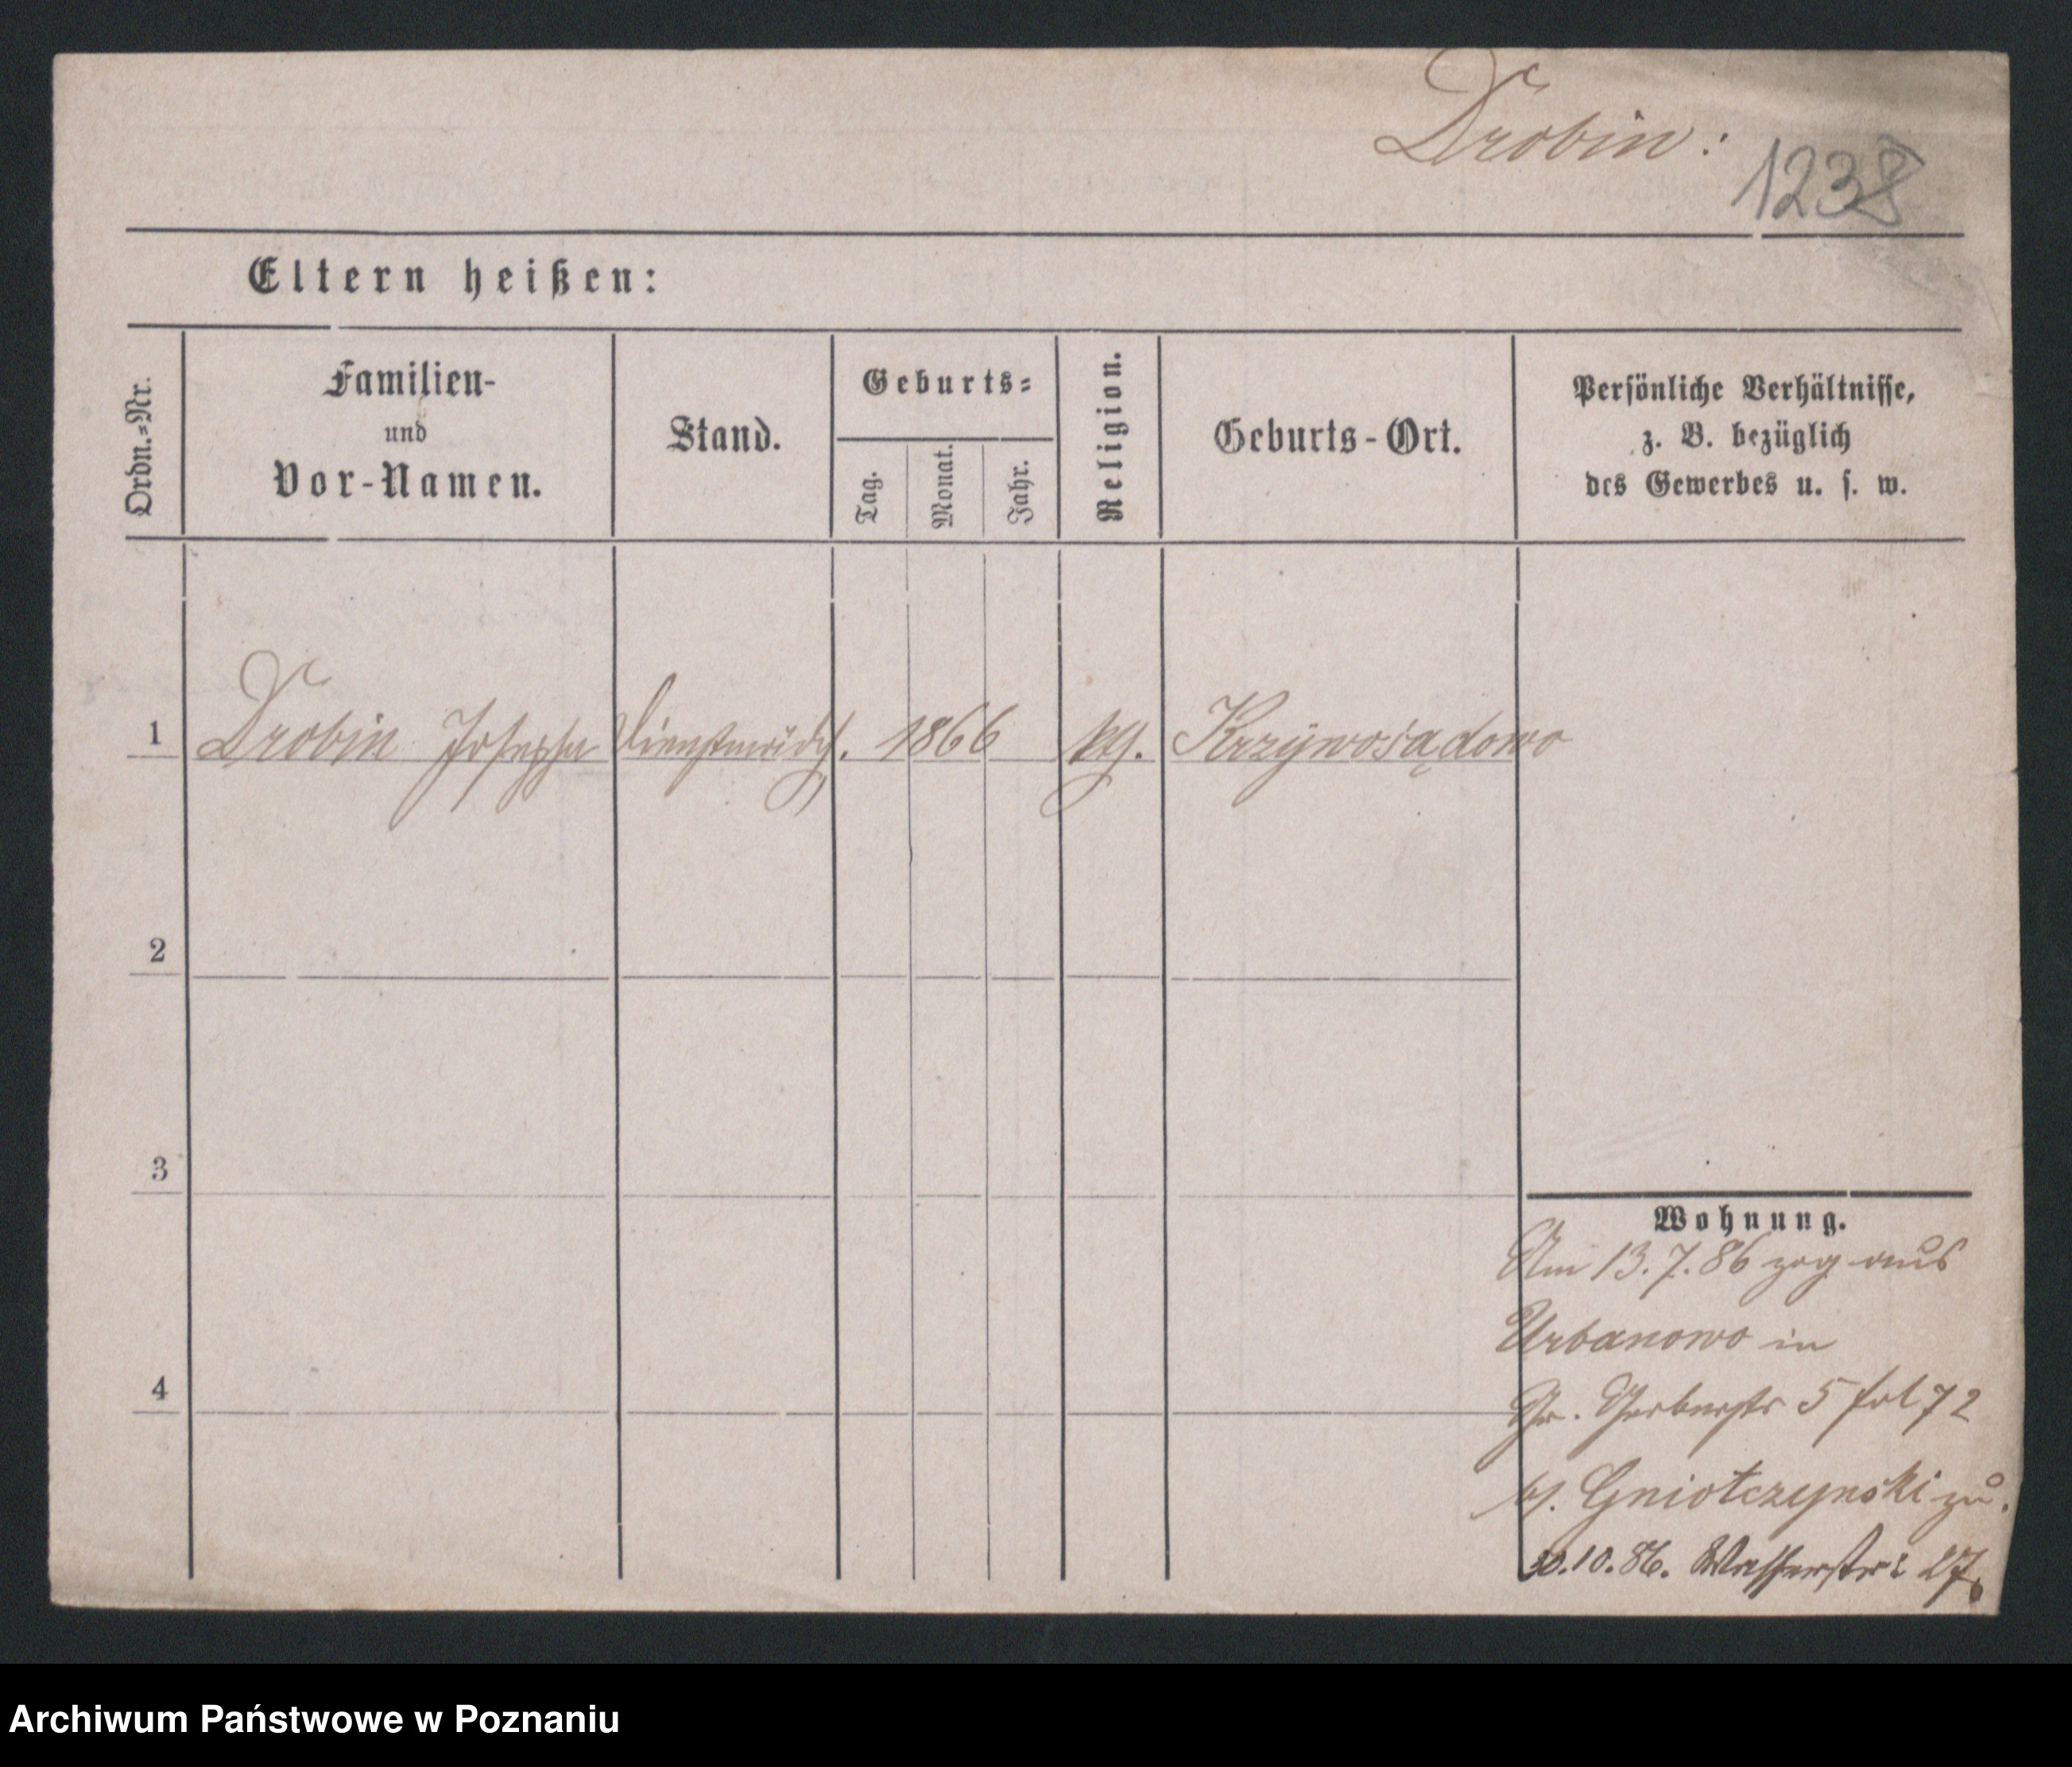 Drobin:
1238
Eltern heißen:
Ordn.=Nr.
Familien-
und
Vor-Namen.
Stand.
Geburts=
Tag.
Monat.
Jahr.
Religion.
Geburts-Ort.
Persönliche Verhältnisse,
z. B. bezüglich
des Gewerbes u. s. w.
1 Drobin Josepha 1866 Krzywosądowo
2
3
4
Wohnung.
Am 13.7.86 zog aus
Urbanowo in
Gr. Gerberstr 5 fol 72
b/. Gniotczynski zu.
30.10.86. Wasserstr: 27.
Archiwum Państwowe w Poznaniu